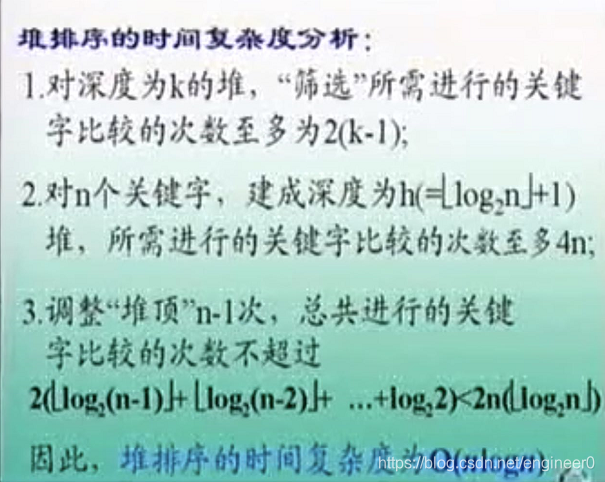 堆排序的时间复杂度分析：
1.对深度为k的堆，“筛选”所需进行的关键
字比较的次数至多为2(k-1);
2.对n个关键字，建成深度为h(=⌊log₂n⌋+1)
堆，所需进行的关键字比较的次数至多4n;
3.调整“堆顶”n-1次，总共进行的关键
字比较的次数不超过
2(⌊log₂(n-1)⌋+⌊log₂(n-2)⌋+ …+log₂2)<2n(⌊log₂n⌋)
因此，堆排序的时间复杂度为O(nlogn)
https://blog.csdn.net/engineer0